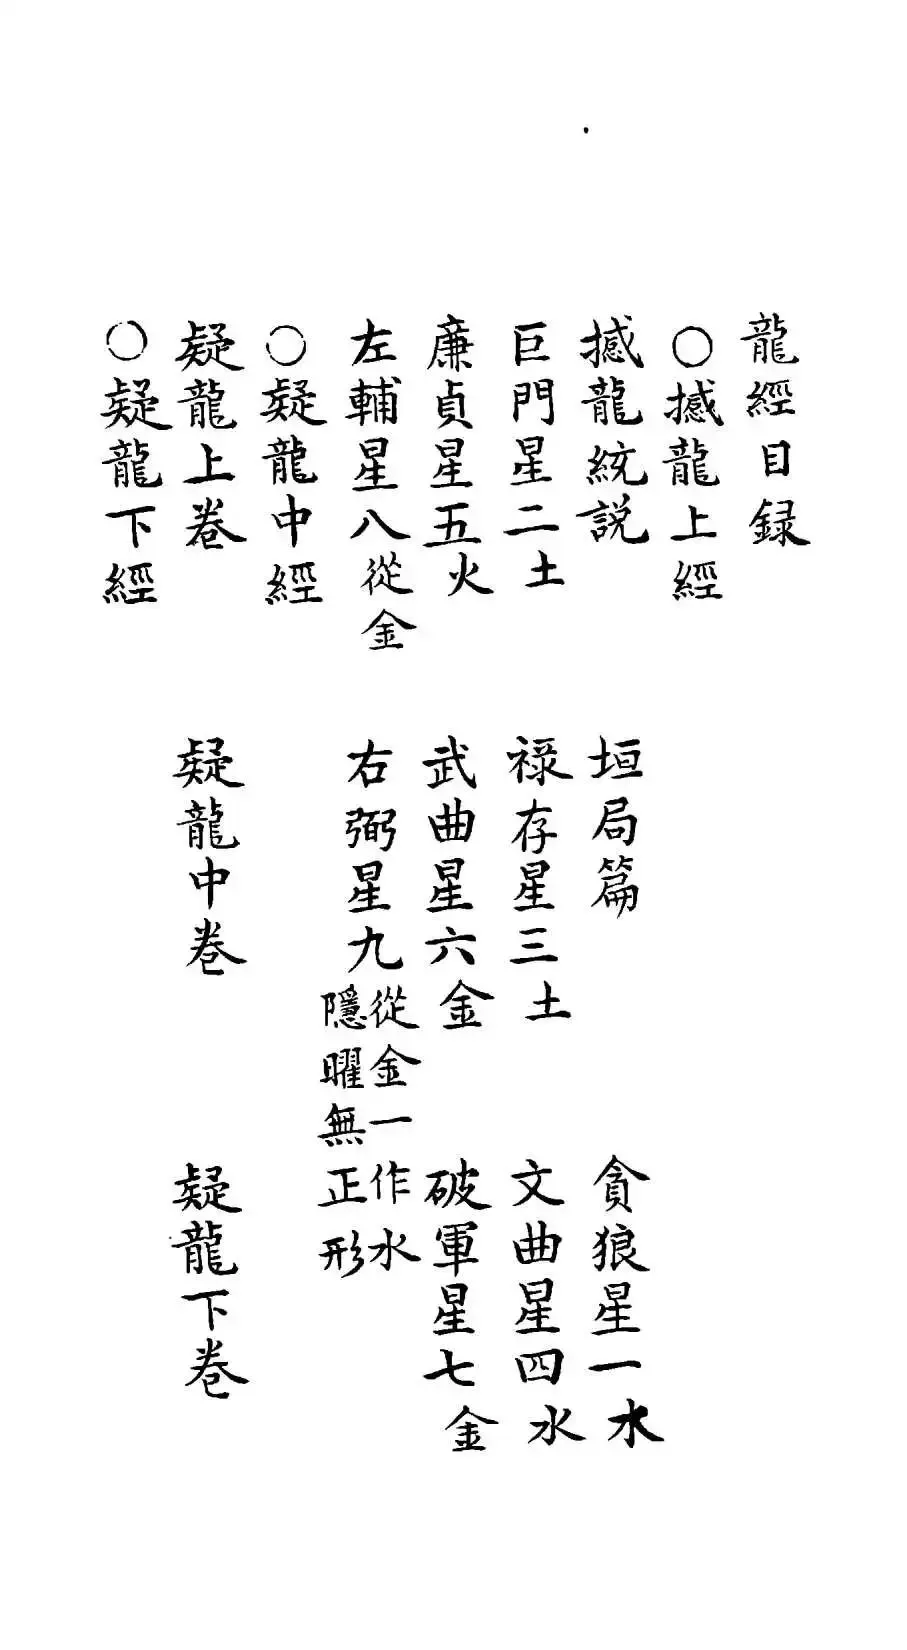 龍經目録
○撼龍上經
撼龍統説 垣局篇 貪狼星一水
巨門星二土 祿存星三土 文曲星四水
廉貞星五火 武曲星六金 破軍星七金
左輔星八從金 右弼星九從金一作水隱曜無正形
○疑龍中經
疑龍上卷 疑龍中卷 疑龍下卷
○疑龍下經